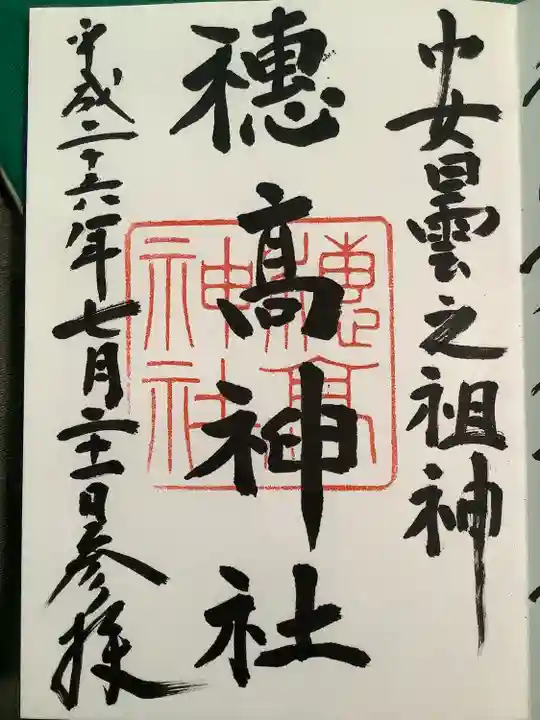 安曇之祖神
穂髙神社
平成二十六年七月二十一日参拝
穂高神社